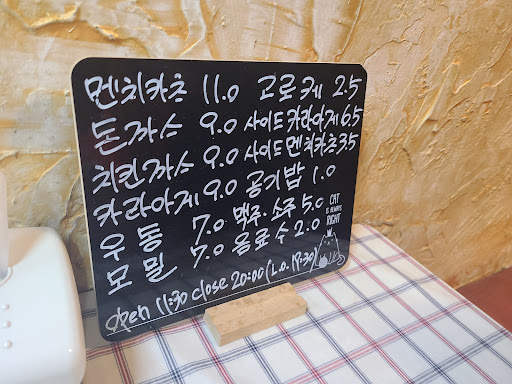 멘치카츠 11.0 고로케 2.5
돈까스 9.0 사이드카라아게 6.5
치킨까스 9.0 사이드멘치카츠 3.5
카라아게 9.0 공기밥 1.0
우동 7.0 맥주·소주 5.0
모밀 7.0 음료수 2.0
CAT
IS ALWAYS
RIGHT
open 11:30 close 20:00 (L.O. 19:30)